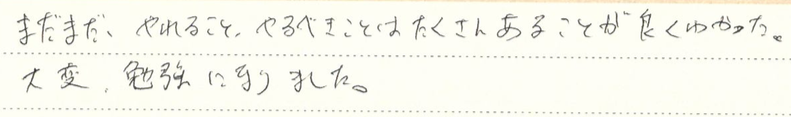 まだまだ、やれること、やるべきことはたくさんあることが良くわかった。
大変、勉強になりました。